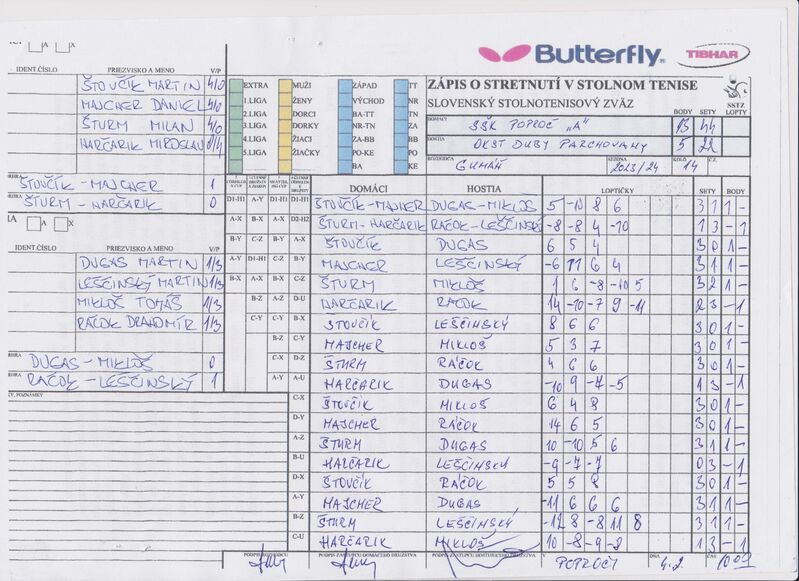 Butterfly
TIBHAR
ZÁPIS O STRETNUTÍ V STOLNOM TENISE
SLOVENSKÝ STOLNOTENISOVÝ ZVÄZ
SSTZ
DOMÁCI SŠK POPROČ "A" BODY 13 SETY 44 LOPTY
HOSTIA OKST DUBY PARCHOVANY 5 22
ROZHODCA GUMÁŇ SEZÓNA 2023/24 KOLO 14 Č.
EXTRA MUŽI ZÁPAD TT
1.LIGA ŽENY VÝCHOD NR
2.LIGA DORCI BA-TT TN
3.LIGA DORKY NR-TN ZA
4.LIGA ŽIACI ZA-BB BB
5.LIGA ŽIAČKY PO-KE PO
BA KE
IDENT.ČÍSLO PRIEZVISKO A MENO V/P
ŠTOVČÍK MARTIN 4/0
MAJCHER DANIEL 4/0
ŠTURM MILAN 4/0
HARČARIK MIROSLAV 0/4
ŠTOVČÍK - MAJCHER 1
ŠTURM - HARČARIK 0
IDENT.ČÍSLO PRIEZVISKO A MENO V/P
DUGAS MARTIN 1/3
LEŠČINSKÝ MARTIN 1/3
MIKLOŠ TOMÁŠ 1/3
RÁČOK DRAHOMÍR 1/3
DUGAS - MIKLOŠ 0
RAČOK - LEŠČINSKÝ 1
POZNÁMKY
DOMÁCI HOSTIA LOPTIČKY SETY BODY
D1-H1 A-Y D1-H1 D1-H1 ŠTOVČÍK-MAJHER DUGAS-MIKLOŠ 5 -10 8 6 3 1 1 -
A-X B-X A-X D2-H2 ŠTURM-HARČARIK RAČOK-LEŠČINSKÝ -8 -8 4 -10 1 3 - 1
B-Y C-Z B-Y A-X ŠTOVČÍK DUGAS 6 5 4 3 0 1 -
A-Y D1-H1 C-Z B-Y MAJCHER LEŠČINSKÝ -6 11 6 4 3 1 1 -
B-X A-X B-X C-Z ŠTURM MIKLOŠ 1 6 -8 -10 5 3 2 1 -
B-Z A-Z D-U HARČARIK RAČOK 14 -10 -7 9 -11 2 3 - 1
C-Y C-Y B-X ŠTOVČÍK LEŠČINSKÝ 8 6 6 3 0 1 -
B-Z C-Y MAJCHER MIKLOŠ 5 3 7 3 0 1 -
C-X D-Z ŠTURM RÁČOK 4 6 6 3 0 1 -
A-Y A-U HARČARIK DUGAS -10 9 -7 -5 1 3 - 1
C-X ŠTOVČÍK MIKLOŠ 6 4 8 3 0 1 -
D-Y MAJCHER RAČOK 14 6 5 3 0 1 -
A-Z ŠTURM DUGAS 10 -10 5 6 3 1 1 -
B-U HARČARIK LEŠČINSKÝ -9 -7 -7 0 3 - 1
D-X ŠTOVČÍK RAČOK 5 5 8 3 0 1 -
A-Y MAJCHER DUGAS -11 6 6 6 3 1 1 -
B-Z ŠTURM LEŠČINSKÝ -12 8 -8 11 8 3 1 1 -
C-U HARČARIK MIKLOŠ 10 -8 -9 -8 1 3 - 1
PODPIS ROZHODCU PODPIS ZÁSTUPCU DOMÁCEHO DRUŽSTVA PODPIS ZÁSTUPCU HOSTUJÚCEHO DRUŽSTVA V POPROČI DŇA 4.2. ČAS